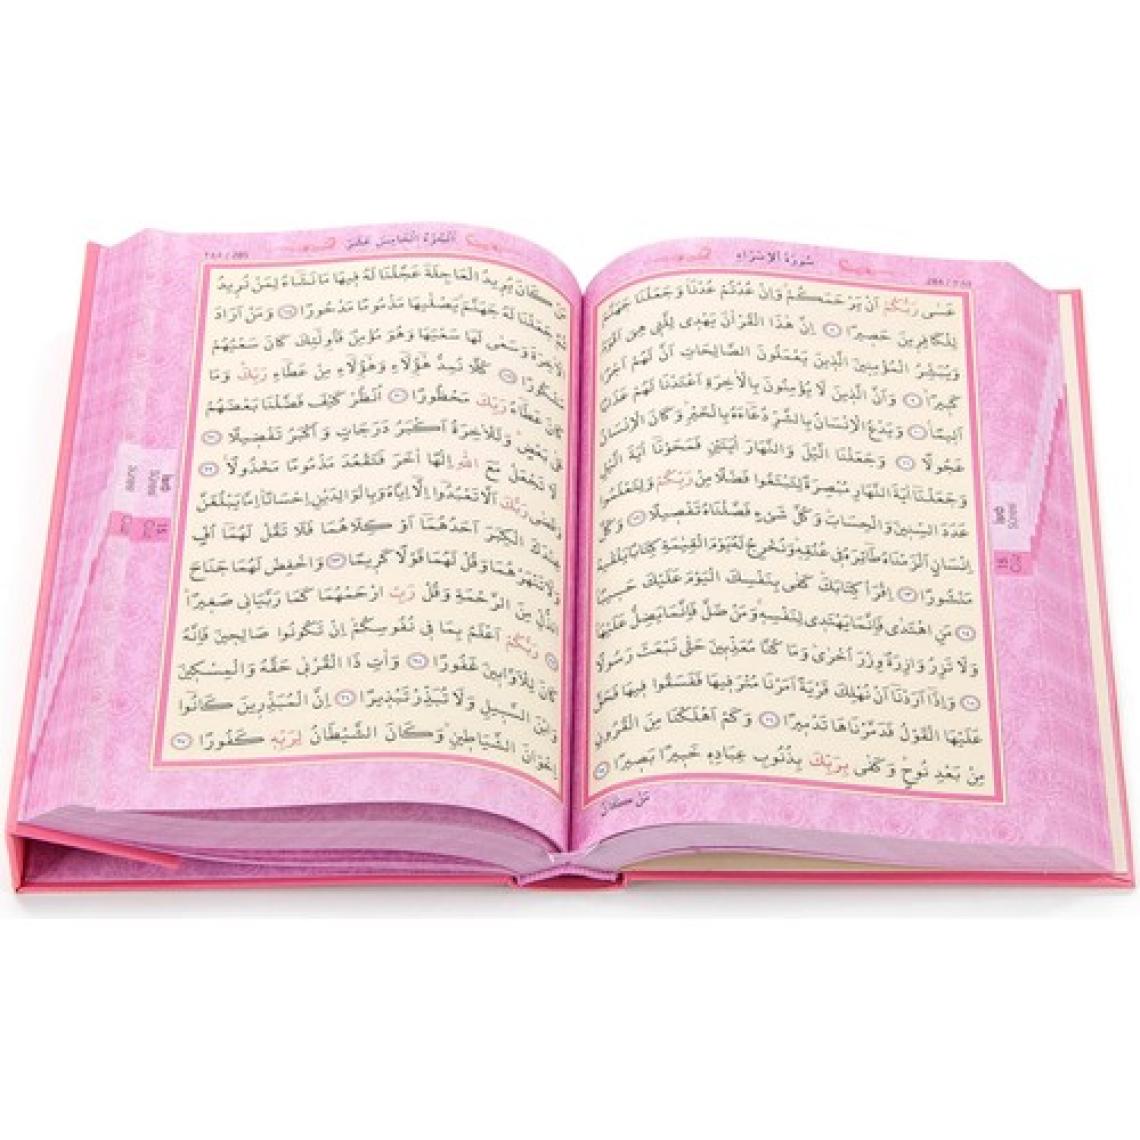 سُورَةُ الْاِسْرَاءِ
عَسٰى رَبُّكُمْ اَنْ يَرْحَمَكُمْ وَاِنْ عُدْتُمْ عُدْنَا وَجَعَلْنَا جَهَنَّمَ
لِلْكَافِرِينَ حَصِيرًا ﴿٨﴾ اِنَّ هٰذَا الْقُرْاٰنَ يَهْدِى لِلَّتِى هِىَ اَقْوَمُ
وَيُبَشِّرُ الْمُؤْمِنِينَ الَّذِينَ يَعْمَلُونَ الصَّالِحَاتِ اَنَّ لَهُمْ اَجْرًا
كَبِيرًا ﴿٩﴾ وَاَنَّ الَّذِينَ لَا يُؤْمِنُونَ بِالْاٰخِرَةِ اَعْتَدْنَا لَهُمْ عَذَابًا
اَلِيمًا ﴿١٠﴾ وَيَدْعُ الْاِنْسَانُ بِالشَّرِّ دُعَاءَهُ بِالْخَيْرِ وَكَانَ الْاِنْسَانُ
عَجُولًا ﴿١١﴾ وَجَعَلْنَا الَّيْلَ وَالنَّهَارَ اٰيَتَيْنِ فَمَحَوْنَا اٰيَةَ الَّيْلِ
وَجَعَلْنَا اٰيَةَ النَّهَارِ مُبْصِرَةً لِتَبْتَغُوا فَضْلًا مِنْ رَبِّكُمْ وَلِتَعْلَمُوا
عَدَدَ السِّنِينَ وَالْحِسَابَ وَكُلَّ شَىْءٍ فَصَّلْنَاهُ تَفْصِيلًا ﴿١٢﴾ وَكُلَّ
اِنْسَانٍ اَلْزَمْنَاهُ طَائِرَهُ فِى عُنُقِهِ وَنُخْرِجُ لَهُ يَوْمَ الْقِيٰمَةِ كِتَابًا يَلْقٰيهُ
مَنْشُورًا ﴿١٣﴾ اِقْرَأْ كِتَابَكَ كَفٰى بِنَفْسِكَ الْيَوْمَ عَلَيْكَ حَسِيبًا
﴿١٤﴾ مَنِ اهْتَدٰى فَاِنَّمَا يَهْتَدِى لِنَفْسِهِ وَمَنْ ضَلَّ فَاِنَّمَا يَضِلُّ عَلَيْهَا
وَلَا تَزِرُ وَازِرَةٌ وِزْرَ اُخْرٰى وَمَا كُنَّا مُعَذِّبِينَ حَتّٰى نَبْعَثَ رَسُولًا
﴿١٥﴾ وَاِذَا اَرَدْنَا اَنْ نُهْلِكَ قَرْيَةً اَمَرْنَا مُتْرَفِيهَا فَفَسَقُوا فِيهَا فَحَقَّ
عَلَيْهَا الْقَوْلُ فَدَمَّرْنَاهَا تَدْمِيرًا ﴿١٦﴾ وَكَمْ اَهْلَكْنَا مِنَ الْقُرُونِ
مِنْ بَعْدِ نُوحٍ وَكَفٰى بِرَبِّكَ بِذُنُوبِ عِبَادِهِ خَبِيرًا بَصِيرًا ﴿١٧﴾
مَنْ كَانَ
اَلْجُزْءُ الْخَامِسَ عَشَرَ
مَنْ كَانَ يُرِيدُ الْعَاجِلَةَ عَجَّلْنَا لَهُ فِيهَا مَا نَشَاءُ لِمَنْ نُرِيدُ
ثُمَّ جَعَلْنَا لَهُ جَهَنَّمَ يَصْلٰيهَا مَذْمُومًا مَدْحُورًا ﴿١٨﴾ وَمَنْ اَرَادَ
الْاٰخِرَةَ وَسَعٰى لَهَا سَعْيَهَا وَهُوَ مُؤْمِنٌ فَاُولٰئِكَ كَانَ سَعْيُهُمْ
مَشْكُورًا ﴿١٩﴾ كُلًّا نُمِدُّ هٰؤُلَاءِ وَهٰؤُلَاءِ مِنْ عَطَاءِ رَبِّكَ وَمَا
كَانَ عَطَاءُ رَبِّكَ مَحْظُورًا ﴿٢٠﴾ اُنْظُرْ كَيْفَ فَضَّلْنَا بَعْضَهُمْ
عَلٰى بَعْضٍ وَلَلْاٰخِرَةُ اَكْبَرُ دَرَجَاتٍ وَاَكْبَرُ تَفْضِيلًا ﴿٢١﴾
لَا تَجْعَلْ مَعَ اللّٰهِ اِلٰهًا اٰخَرَ فَتَقْعُدَ مَذْمُومًا مَخْذُولًا ﴿٢٢﴾
وَقَضٰى رَبُّكَ اَلَّا تَعْبُدُوا اِلَّا اِيَّاهُ وَبِالْوَالِدَيْنِ اِحْسَانًا اِمَّا يَبْلُغَنَّ
عِنْدَكَ الْكِبَرَ اَحَدُهُمَا اَوْ كِلَاهُمَا فَلَا تَقُلْ لَهُمَا اُفٍّ
وَلَا تَنْهَرْهُمَا وَقُلْ لَهُمَا قَوْلًا كَرِيمًا ﴿٢٣﴾ وَاخْفِضْ لَهُمَا جَنَاحَ
الذُّلِّ مِنَ الرَّحْمَةِ وَقُلْ رَبِّ ارْحَمْهُمَا كَمَا رَبَّيَانِى صَغِيرًا
﴿٢٤﴾ رَبُّكُمْ اَعْلَمُ بِمَا فِى نُفُوسِكُمْ اِنْ تَكُونُوا صَالِحِينَ فَاِنَّهُ
كَانَ لِلْاَوَّابِينَ غَفُورًا ﴿٢٥﴾ وَاٰتِ ذَا الْقُرْبٰى حَقَّهُ وَالْمِسْكِينَ
وَابْنَ السَّبِيلِ وَلَا تُبَذِّرْ تَبْذِيرًا ﴿٢٦﴾ اِنَّ الْمُبَذِّرِينَ كَانُوا
اِخْوَانَ الشَّيَاطِينِ وَكَانَ الشَّيْطَانُ لِرَبِّهِ كَفُورًا ﴿٢٧﴾